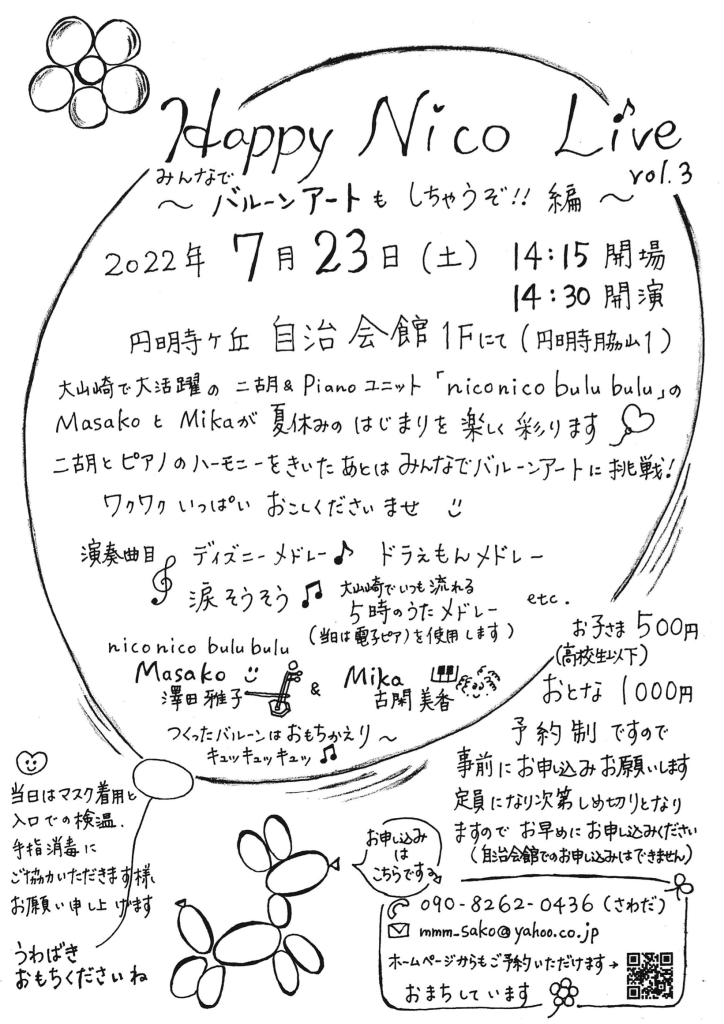 Happy Nico Live
vol.3
みんなで
～ バルーンアートも しちゃうぞ!! 編 ～
2022年 7月23日(土) 14:15 開場
14:30 開演
円明寺ヶ丘 自治会館 1Fにて (円明寺脇山1)
大山崎で大活躍の 二胡&Pianoユニット「niconico bulu bulu」の
Masako と Mikaが 夏休みの はじまりを 楽しく 彩ります
二胡とピアノのハーモニーをきいたあとは みんなでバルーンアートに挑戦!
ワクワク いっぱい おこしくださいませ
演奏曲目 ディズニーメドレー♪ ドラえもんメドレー
涙そうそう♫ 大山崎でいつも流れる
5時のうたメドレー etc.
(当日は電子ピアノを使用します)
niconico bulu bulu
Masako & Mika
澤田 雅子 古閑 美香
つくったバルーンは おもちかえり～
キュッキュッキュッ♫
お子さま 500円
(高校生以下)
おとな 1000円
予約制ですので
事前にお申し込みお願いします
定員になり次第しめ切りとなり
ますので お早めに お申し込みください
(自治会館でのお申し込みはできません)
当日はマスク着用と
入口での検温、
手指消毒に
ご協力いただきます様、
お願い申し上げます
うわばき
おもちくださいね
お申し込み
は
こちらです
090-8262-0436 (さわだ)
mmm_sako@yahoo.co.jp
ホームページからもご予約いただけます→
おまちしています